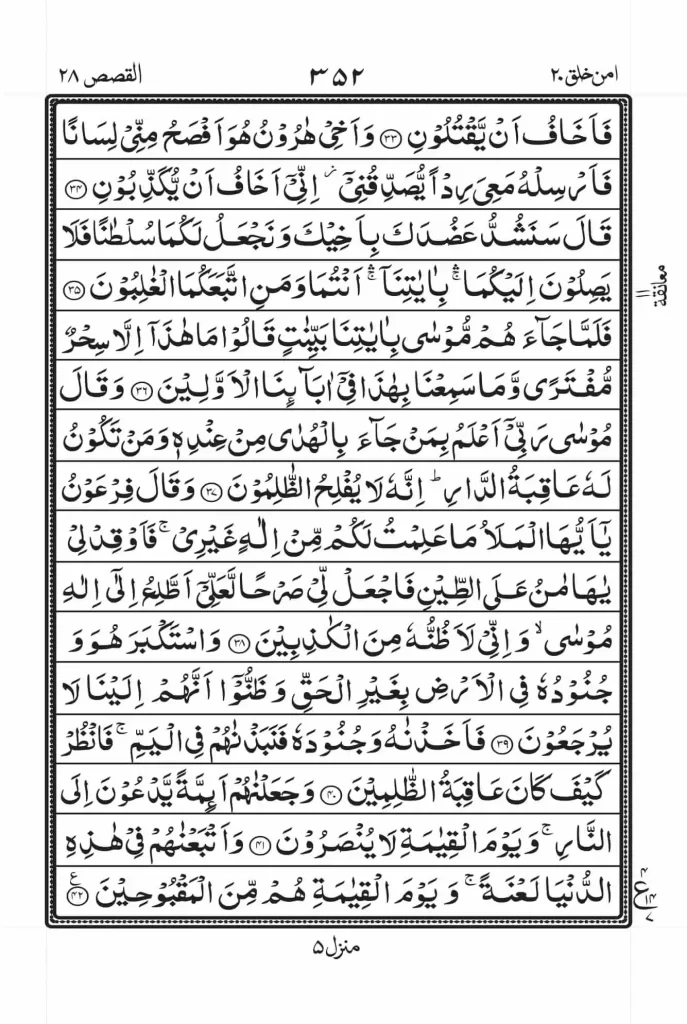 امن خلق ۲۰ ۳۵۲ القصص ۲۸
فَاَخَافُ اَنۡ يَّقۡتُلُوۡنِ ﴿۳۳﴾ وَاَخِىۡ هٰرُوۡنُ هُوَ اَفۡصَحُ مِنِّىۡ لِسَانًا
فَاَرۡسِلۡهُ مَعِىَ رِدۡاً يُّصَدِّقُنِىۡٓ ۖ اِنِّىۡۤ اَخَافُ اَنۡ يُّكَذِّبُوۡنِ ﴿۳۴﴾
قَالَ سَنَشُدُّ عَضُدَكَ بِاَخِيۡكَ وَنَجۡعَلُ لَكُمَا سُلۡطٰنًا فَلَا
يَصِلُوۡنَ اِلَيۡكُمَا ۛۚ بِاٰيٰتِنَاۤ ۛۚ اَنۡتُمَا وَمَنِ اتَّبَعَكُمَا الۡغٰلِبُوۡنَ ﴿۳۵﴾
معانقة ۱۱
فَلَمَّا جَآءَ هُمۡ مُّوۡسٰى بِاٰيٰتِنَا بَيِّنٰتٍ قَالُوۡا مَا هٰذَاۤ اِلَّا سِحۡرٌ
مُّفۡتَرًى وَّمَا سَمِعۡنَا بِهٰذَا فِىۡۤ اٰبَآٮِٕنَا الۡاَوَّلِيۡنَ ﴿۳۶﴾ وَقَالَ
مُوۡسٰى رَبِّىۡۤ اَعۡلَمُ بِمَنۡ جَآءَ بِالۡهُدٰى مِنۡ عِنۡدِهٖ وَمَنۡ تَكُوۡنُ
لَهٗ عَاقِبَةُ الدَّارِ‌ؕ اِنَّهٗ لَا يُفۡلِحُ الظّٰلِمُوۡنَ ﴿۳۷﴾ وَقَالَ فِرۡعَوۡنُ
يٰۤاَيُّهَا الۡمَلَاُ مَا عَلِمۡتُ لَكُمۡ مِّنۡ اِلٰهٍ غَيۡرِىۡ‌ۚ فَاَوۡقِدۡ لِىۡ
يٰهَامٰنُ عَلَى الطِّيۡنِ فَاجۡعَلۡ لِّىۡ صَرۡحًا لَّعَلِّىۡۤ اَطَّلِعُ اِلٰٓى اِلٰهِ
مُوۡسٰى ۙ وَاِنِّىۡ لَاَظُنُّهٗ مِنَ الۡكٰذِبِيۡنَ ﴿۳۸﴾ وَاسۡتَكۡبَرَ هُوَ وَ
جُنُوۡدُهٗ فِى الۡاَرۡضِ بِغَيۡرِ الۡحَقِّ وَظَنُّوۡۤا اَنَّهُمۡ اِلَيۡنَا لَا
يُرۡجَعُوۡنَ ﴿۳۹﴾ فَاَخَذۡنٰهُ وَجُنُوۡدَهٗ فَنَبَذۡنٰهُمۡ فِى الۡيَمِّ‌ۚ فَانْظُرۡ
كَيۡفَ كَانَ عَاقِبَةُ الظّٰلِمِيۡنَ ﴿۴۰﴾ وَجَعَلۡنٰهُمۡ اَٮِٕمَّةً يَّدۡعُوۡنَ اِلَى
النَّارِ‌ۚ وَيَوۡمَ الۡقِيٰمَةِ لَا يُنۡصَرُوۡنَ ﴿۴۱﴾ وَاَتۡبَعۡنٰهُمۡ فِىۡ هٰذِهِ
الدُّنۡيَا لَـعۡنَةً‌ ۚ وَيَوۡمَ الۡقِيٰمَةِ هُمۡ مِّنَ الۡمَقۡبُوۡحِيۡنَ ﴿۴۲﴾ ع
۴ ع ۱۴ ۷
منزل ۵